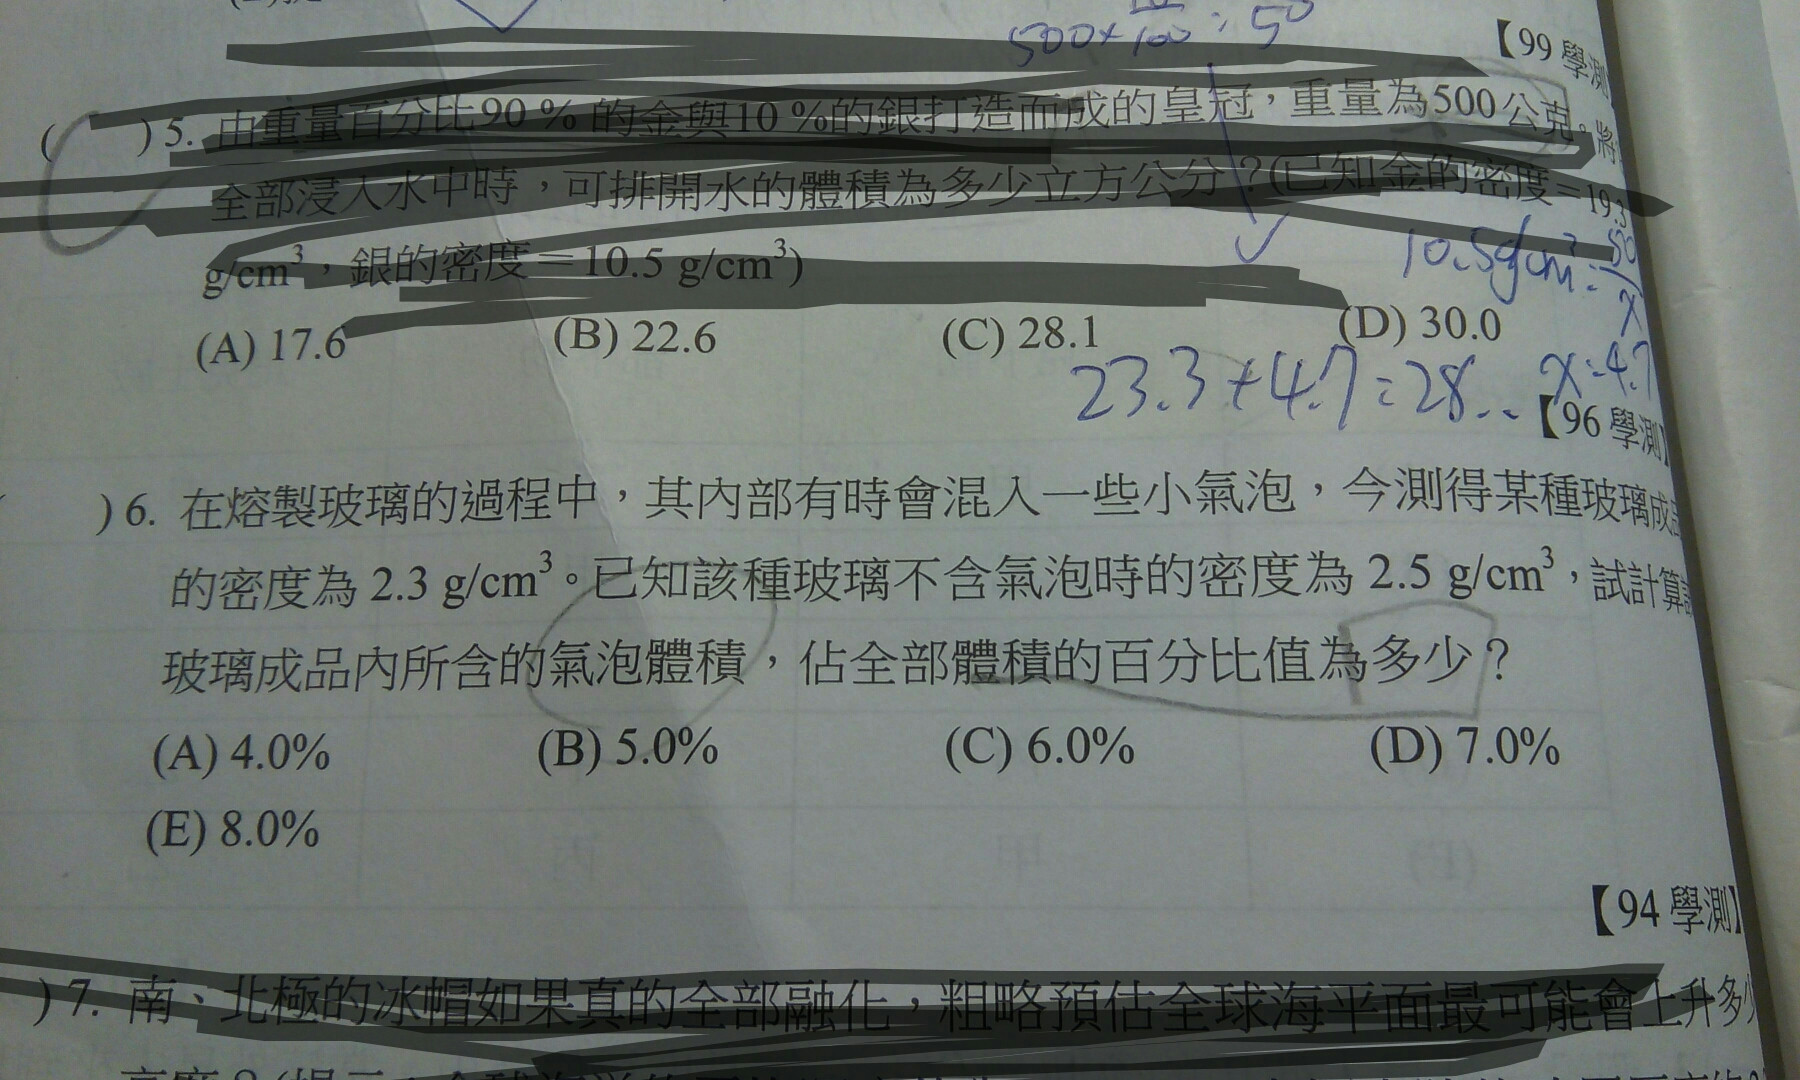 500×10/100=50
【99 學測
( )5. 由重量百分比90 % 的金與10 %的銀打造而成的皇冠,重量為500公克。將
全部浸入水中時,可排開水的體積為多少立方公分?(已知金的密度=19.3
g/cm³,銀的密度=10.5 g/cm³)
10.5g/cm³=50/x
(A) 17.6 (B) 22.6 (C) 28.1 (D) 30.0
23.3+4.7=28.. x=4.7
【96 學測】
( )6. 在熔製玻璃的過程中,其內部有時會混入一些小氣泡,今測得某種玻璃成
的密度為 2.3 g/cm³。已知該種玻璃不含氣泡時的密度為 2.5 g/cm³,試計算
玻璃成品內所含的氣泡體積,佔全部體積的百分比值為多少?
(A) 4.0% (B) 5.0% (C) 6.0% (D) 7.0%
(E) 8.0%
【94 學測】
)7. 南、北極的冰帽如果真的全部融化,粗略預估全球海平面最可能會上升多少